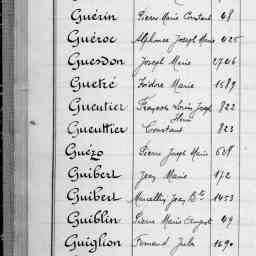 Guérin Pierre Marie Constant 68
Guéroc Alphonse Joseph Marie 625
Guesdon Joseph Marie 2746
Guetré Isidore Marie 1589
Gueutier François Louis Joseph 822
Gueuttier Constant 823
Guézo Pierre Joseph Marie 608
Guibert Jean Marie 172
Guibert Marcellin Jean Bte 1453
Guiblin Pierre Marie 49
Guiglion Fernand Jules 1690